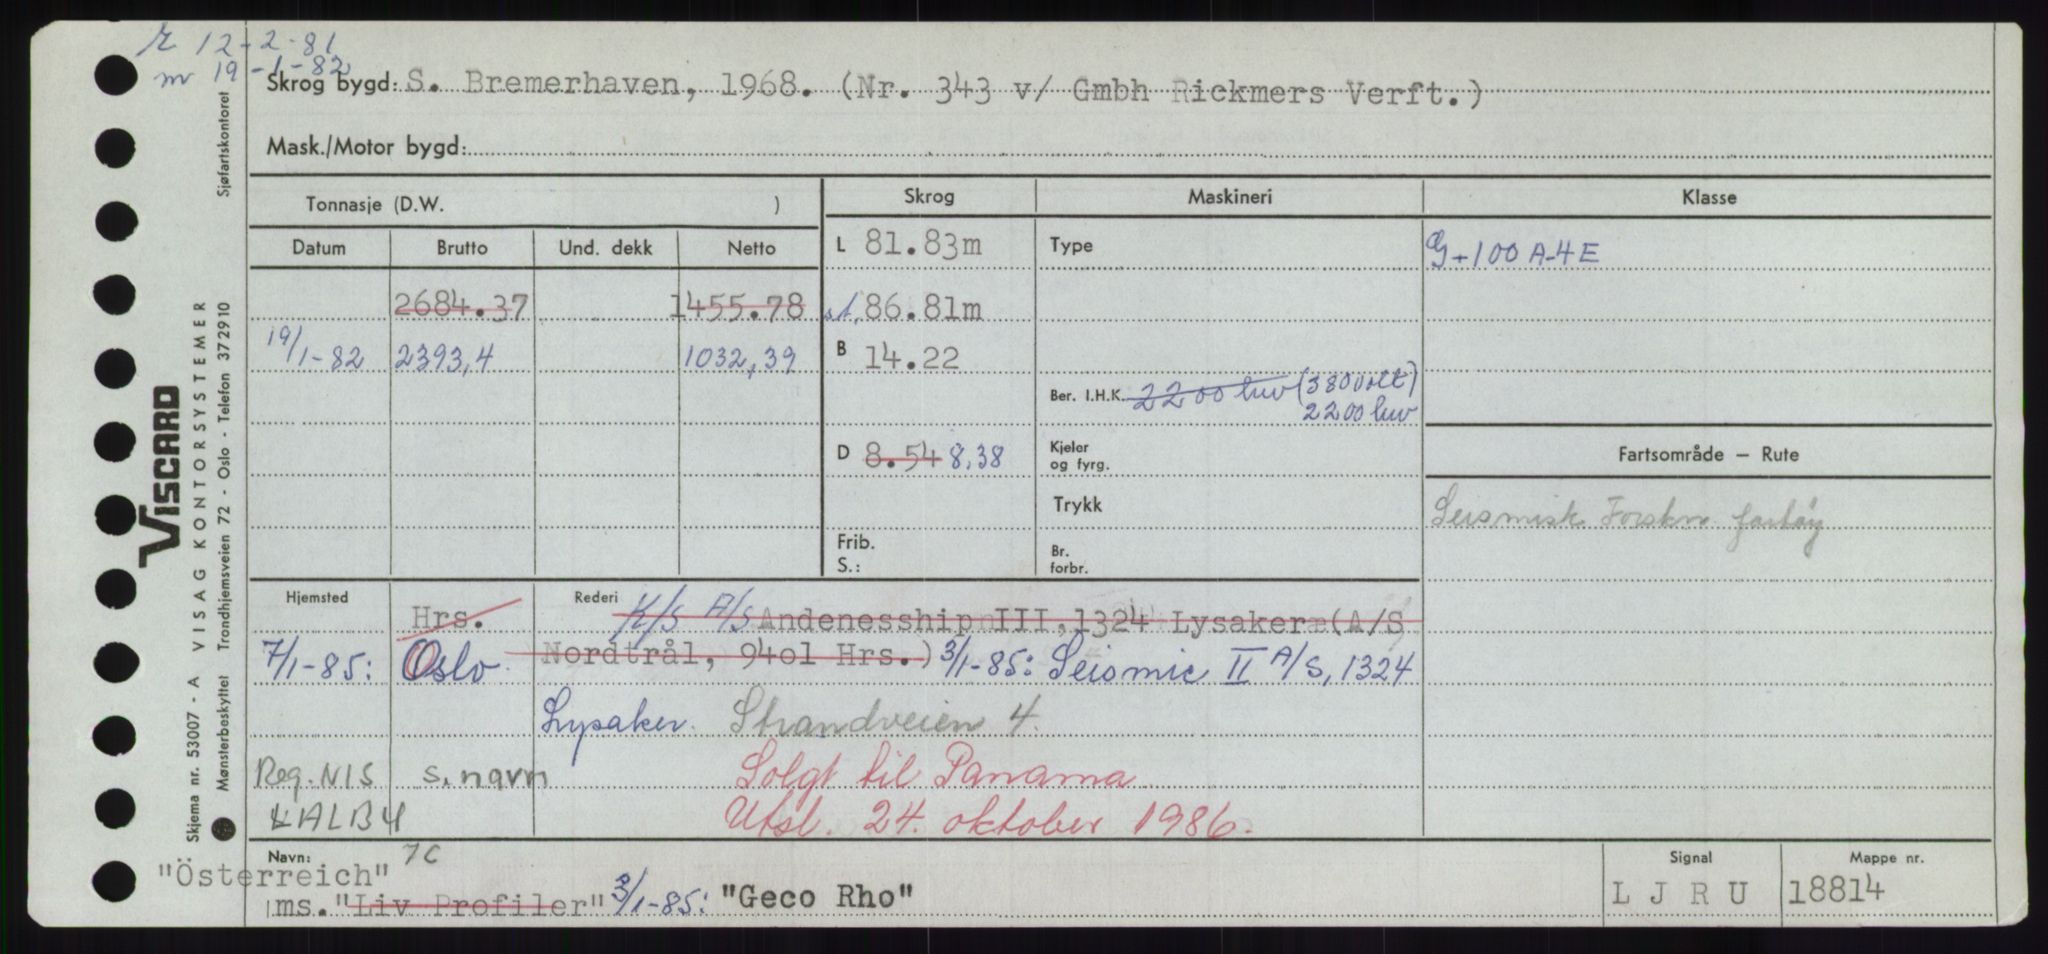 r 12-2-81
m 19-1-82
Skrog bygd: S. Bremerhaven, 1968. (Nr. 343 v/ Gmbh Rickmers Verft.)
Mask./Motor bygd:
Tonnasje (D.W. )
Skrog
Maskineri
Klasse
Datum
Brutto
Und. dekk
Netto
L 81.83m
Type
G+100 A-4E
2684.37
1455.78
st. 86.81m
19/1-82
2393,4
1032,39
B 14.22
Ber. I.H.K. 2200 hw (380volt)
2200 hw
D 8.54 8,38
Kjeler
og fyrg.
Fartsområde — Rute
Trykk
Seismisk Forskn. fartøy
Frib.
S.:
Br.
forbr.
Hjemsted
Hrs.
Rederi
K/S A/S Andenesship III, 1324 Lysaker (A/S
7/1-85: Oslo
Nordtrål, 9401 Hrs.) 3/1-85: Seismic II A/S, 1324
Lysaker. Strandveien 4.
Reg. NIS s. navn
Solgt til Panama
KALBY
Utsl. 24. oktober 1986.
Navn: 7C
"Österreich"
ms. "Liv Profiler" 3/1-85: "Geco Rho"
Signal
L J R U
Mappe nr.
18814
VISCARD
Skjema nr. 53007 - A VISAG KONTORSYSTEMER
Mønsterbeskyttet Trondhjemsveien 72 - Oslo - Telefon 372910
Sjøfartskontoret